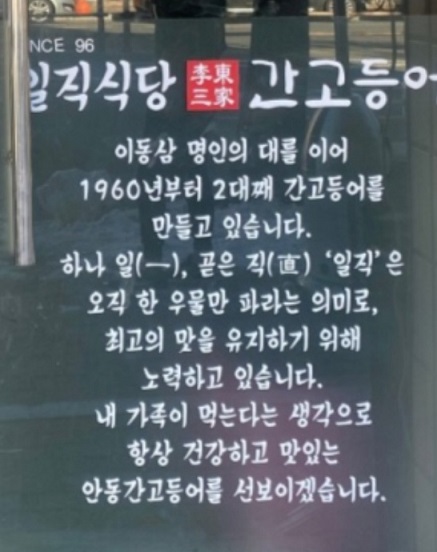 NCE 96
일직식당 李東三家 간고등어
이동삼 명인의 대를 이어
1960년부터 2대째 간고등어를
만들고 있습니다.
하나 일(一), 곧은 직(直) ‘일직’은
오직 한 우물만 파라는 의미로,
최고의 맛을 유지하기 위해
노력하고 있습니다.
내 가족이 먹는다는 생각으로
항상 건강하고 맛있는
안동간고등어를 선보이겠습니다.